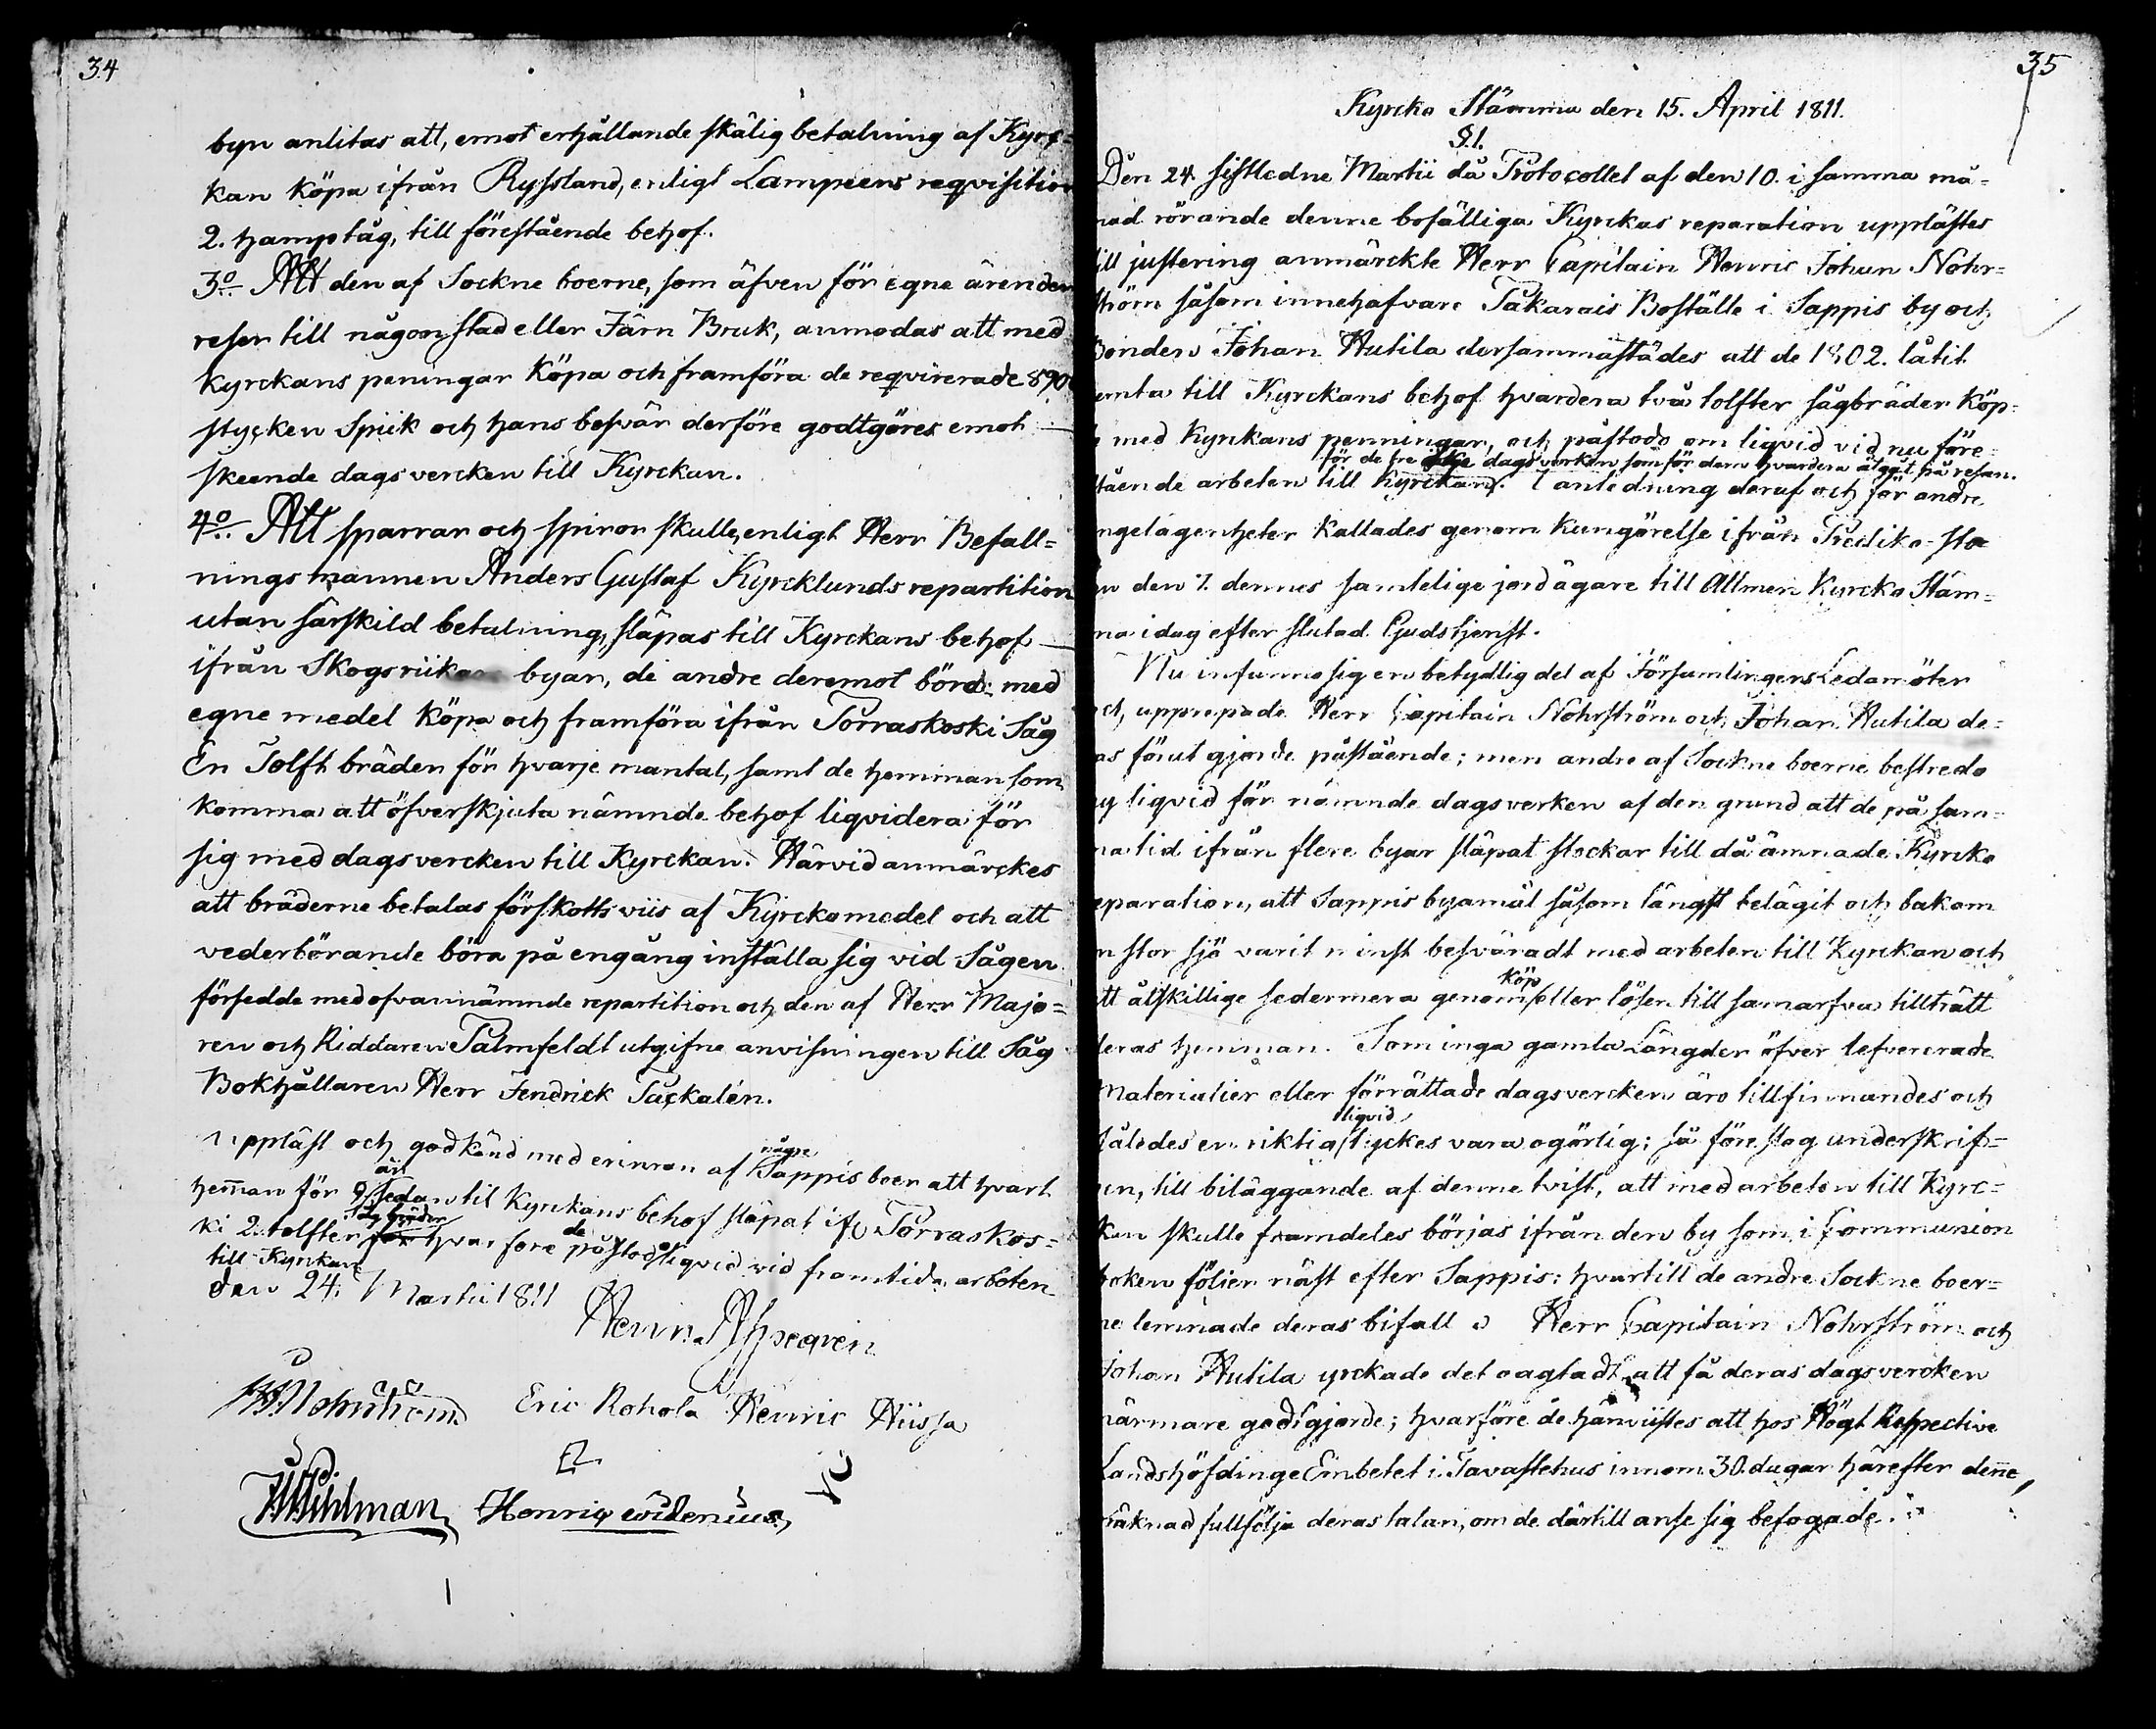 34
byn anlitas att, emot erhållande skälig betalning af Kyrc-
kan köpa ifrån Ryssland, enligt Lampeens reqvisition
2. hamptåg, till förestående behof.
3o Att den af Sockneboerne, som äfven för egne ärenden
reser till någon stad eller Järn Bruk, anmodas att med
Kyrckans peningar köpa och framföra de reqvirerade 890
stycken Spiik och hans besvär derföre godtgöres emot
skeende dagsvercken till Kyrckan.
4o Att sparrar och spiror skulle, enligt Herr Befall=
ningsmannen Anders Gustaf Kyrcklunds repartition
utan särskild betalning, släpas till Kyrckans behof
ifrån Skogsriika byar, de andre deremot böra med
egne medel köpa och framföra ifrån Torraskoski Såg
En Tolft bräden för hvarje mantal, samt de hemman som
komma att öfverskjuta nämnde behof liqvidera för
sig med dagsvercken till Kyrckan. Härvid anmärckes
att bräderne betalas förskottsviis af Kyrckomedel och att
vederbörande böra på engång inställa sig vid Sågen
försedde med ofvannämnde repartition och den af Herr Majo=
ren och Riddaren Palmfeldt utgifne anvisningen till Såg
Bokhållaren Herr Fendrick Tackalén.
Uppläst och godkänd med erinran af några Sappis boer att hvart
heman för 9 år sedan til Kyrckans behof släpat ifr Torraskos=
ki 2 tolfter Sågbräder hvarföre de påstod liqvid vid framtida arbeten
till Kyrkan
den 24. Martii 1811
Henr. Ahlegren
Eric Rohola Henric Hiissa
H Wihlman Henric Widenius
35
Kyrcko Stämma den 15. April 1811.
§.1.
Den 24 sistledne Martii då Protocollet af den 10. i samma må=
nad rörande denne bofälliga Kyrckas reparation upplästes
till justering anmärckte Herr Capitain Henric Johan Nohr=
ström såsom innehafvare Takarais Boställe i Sappis by och
Bonden Johan Autila dersammastädes att de 1802. låtit
hemta till Kyrckans behof hvardera två tolfter sågbräder köp=
te med Kyrkans penningar, och påstodo om liqvid vid nu före=
för de tre dagsverken som för dem hvardera åtgåt på resan.
stående arbeten till Kyrckan. I anledning deraf och för andre
angelägenheter kallades genom kungörelse ifrån Prediko-Sto
len den 7. dennes samtelige jordägare till Allmen Kyrcko Stäm=
ma idag efter slutad Gudstjenst.
Nu infunno sig en betydlig del af Församlingens Ledamöter
och, upprepade Herr Capitain Nohrström och Johan Autila de=
ras förut gjorde påstående; men andre af Sockneboerne bestredo
ny liqvid för nämnde dagsverken af den grund att de på sam=
ma tid ifrån flere byar släpat stockar till då ämnade Kyrcko
reparation, att Sappis byamäl såsom längst belägit och bakom
en stor sjö varit minst besväradt med arbeten till Kyrckan och
att åtskillige sedermera genom köp eller lösen till samarfva tillträtt
deras hemman. Som inga gamla Längder öfver lefvererade
Materialier eller förrättade dagsvercken äro tillfinnandes och
således en riktig liqvid tyckes vara ogörlig; så föreslog underskrif=
ven, till biläggande af denne tvist, att med arbeten till Kyrc=
kan skulle framdeles börjas ifrån den by som i Communion
boken följer näst efter Sappis: hvartill de andre Sockneboer=
ne lemnade deras bifall. Herr Capitain Nohrström och
Johan Autila yrckade det oagtadt att få deras dagsvercken
närmare godtgjorde; hvarföre de hänviistes att hos Högt Respective
Landshöfdinge Embetet i Tavastehus innom 30. dagar härefter denne,
oräknad fullfölja deras talan, om de därtill anse sig befogade.